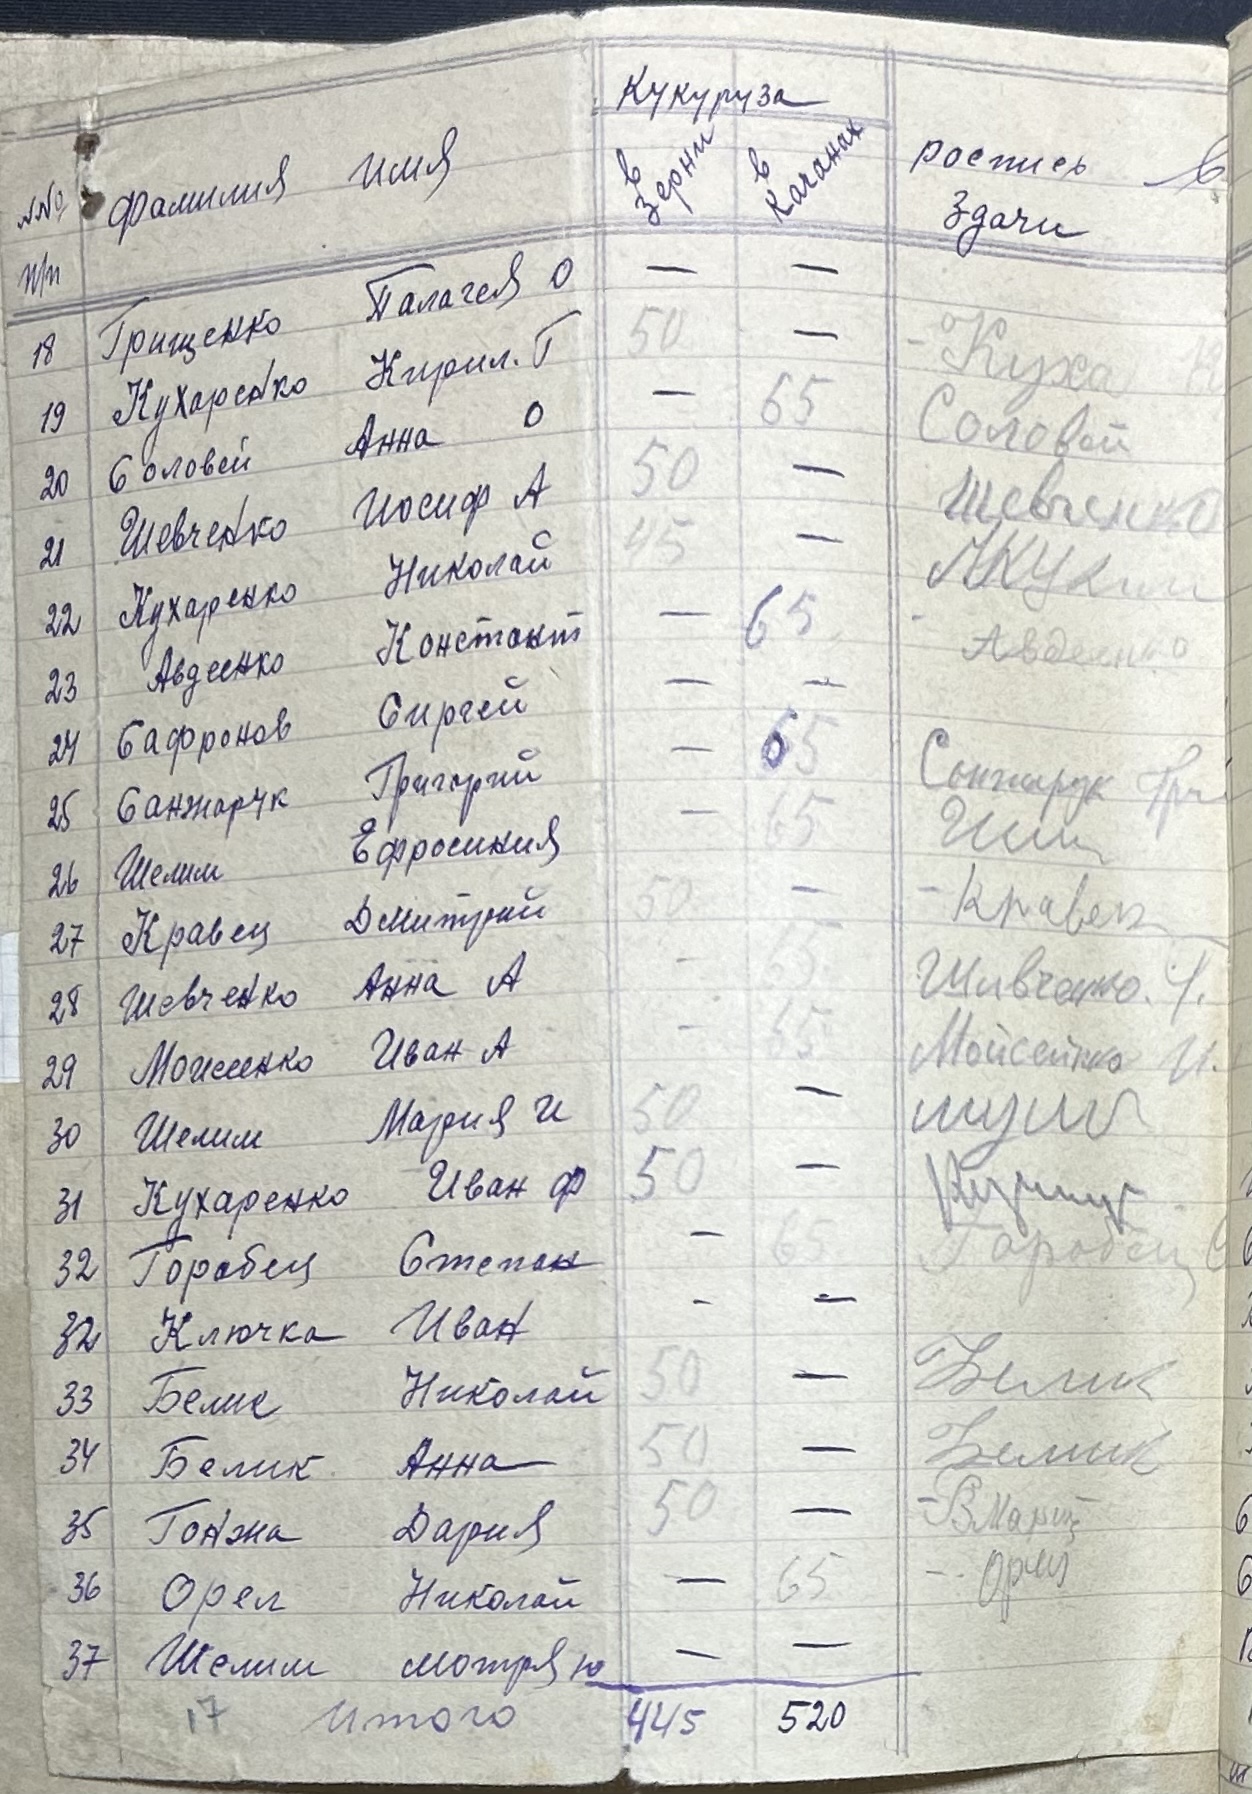 Кукуруза
№№ п/п фамилия имя в зерни в качанах роспись в здачи
18 Грищенко Палагея О — —
19 Кухаренко Кирил. Г 50 — Куха
20 Соловей Анна О — 65 Соловей
21 Шевченко Иосиф А 50 — Шевченко
22 Кухаренко Николай 45 —
23 Авдеенко Констант — 65 Авдеенко
24 Сафронов Сиргей — —
25 Санжарук Григорий — 65 Санжарук Гри
26 Шелим Ефросиния - 65
27 Кравец Дмитрий 50 — - Кравец
28 Шевченко Анна А - 65 Шивченко.
29 Моисеенко Иван А - 65 Мойсейнко И.
30 Шелим Мария И 50 —
31 Кухаренко Иван Ф 50 —
32 Горобец Степан — 65 Горобец С
32 Ключка Иван - —
33 Белик Николай 50 — Белик
34 Белик Анна 50 — Белик
35 Гонжа Дария 50 —
36 Орел Николай — 65 -. Орел
37 Шелим мотря ю — —
17 Итого 445 520